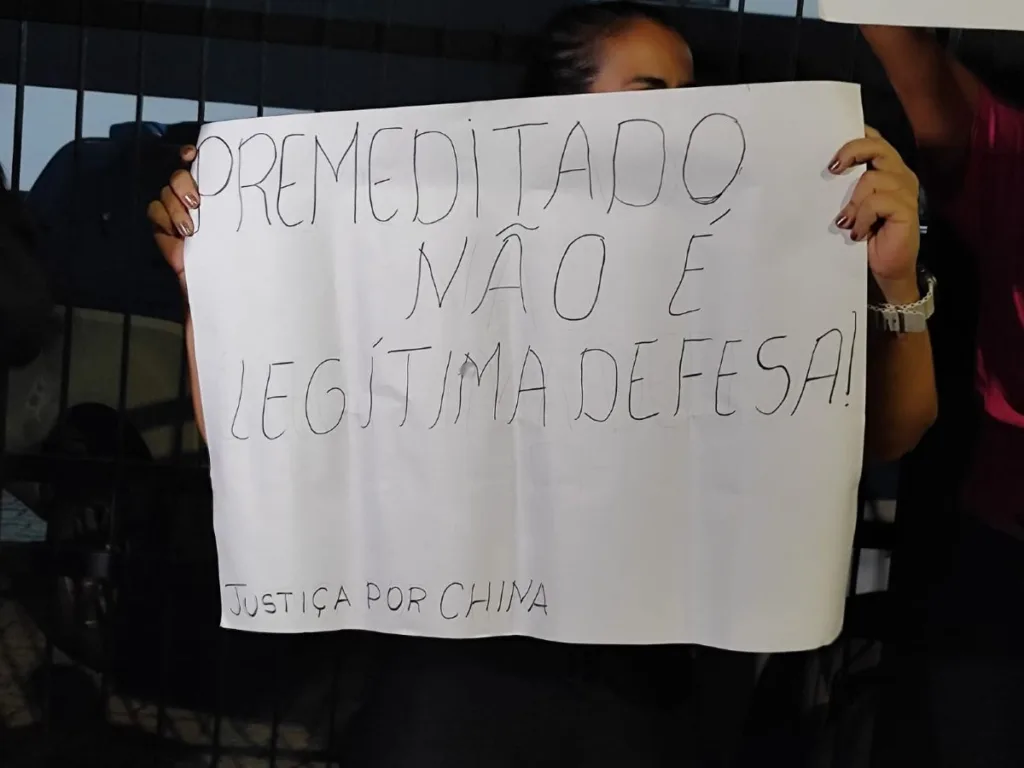 PREMEDITADO
NÃO É
LEGÍTIMA DEFESA!
JUSTIÇA POR CHINA